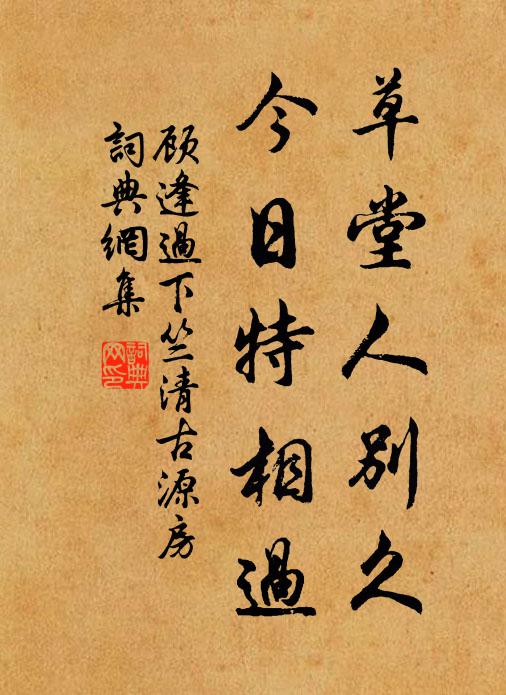 草堂人別久
今日特相過
顾逢過下竺清古源房
詞典網集
詞典網印